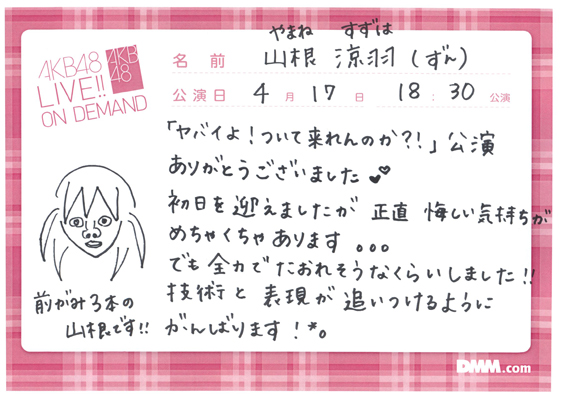 AKB48
LIVE!!
ON DEMAND
AKB
48
やまね すずは
名前 山根 涼羽(ずん)
公演日 4月17日 18:30公演
「ヤバイよ!ついて来れんのか?!」公演
ありがとうございました
初日を迎えましたが 正直 悔しい気持ちが
めちゃくちゃあります。。。
でも全力でたおれそうなくらいしました!!
技術と表現が追いつけるように
がんばります!*。
前がみ3本の
山根です!!
DMM.com